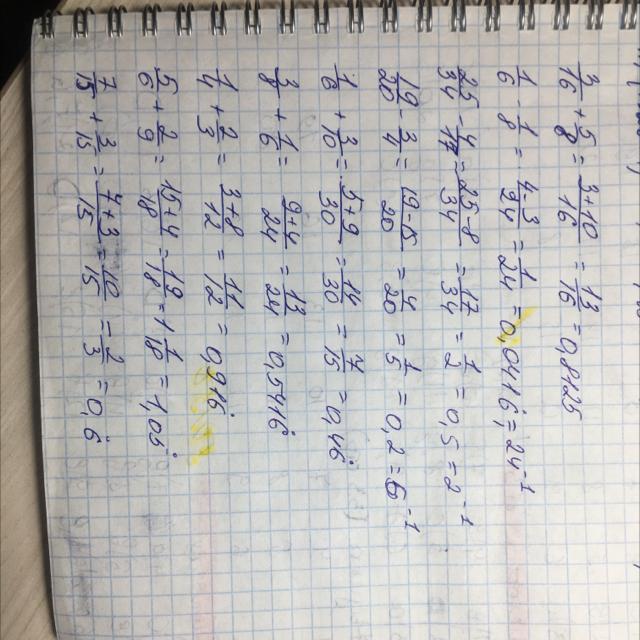 3/16 + 5/8 = 3+10/16 = 13/16 = 0,8125
1/6 - 1/8 = 4-3/24 = 1/24 = 0,0416̇ = 24⁻¹
25/34 - 4/17 = 25-8/34 = 17/34 = 1/2 = 0,5 = 2⁻¹
19/20 - 3/4 = 19-15/20 = 4/20 = 1/5 = 0,2 = 5⁻¹
1/6 + 3/10 = 5+9/30 = 14/30 = 7/15 = 0,46̇
3/8 + 1/6 = 9+4/24 = 13/24 = 0,5416̇
1/4 + 2/3 = 3+8/12 = 11/12 = 0,916̇
5/6 + 2/9 = 15+4/18 = 19/18 = 1 1/18 = 1,05̇
7/15 + 3/15 = 7+3/15 = 10/15 = 2/3 = 0,6̇